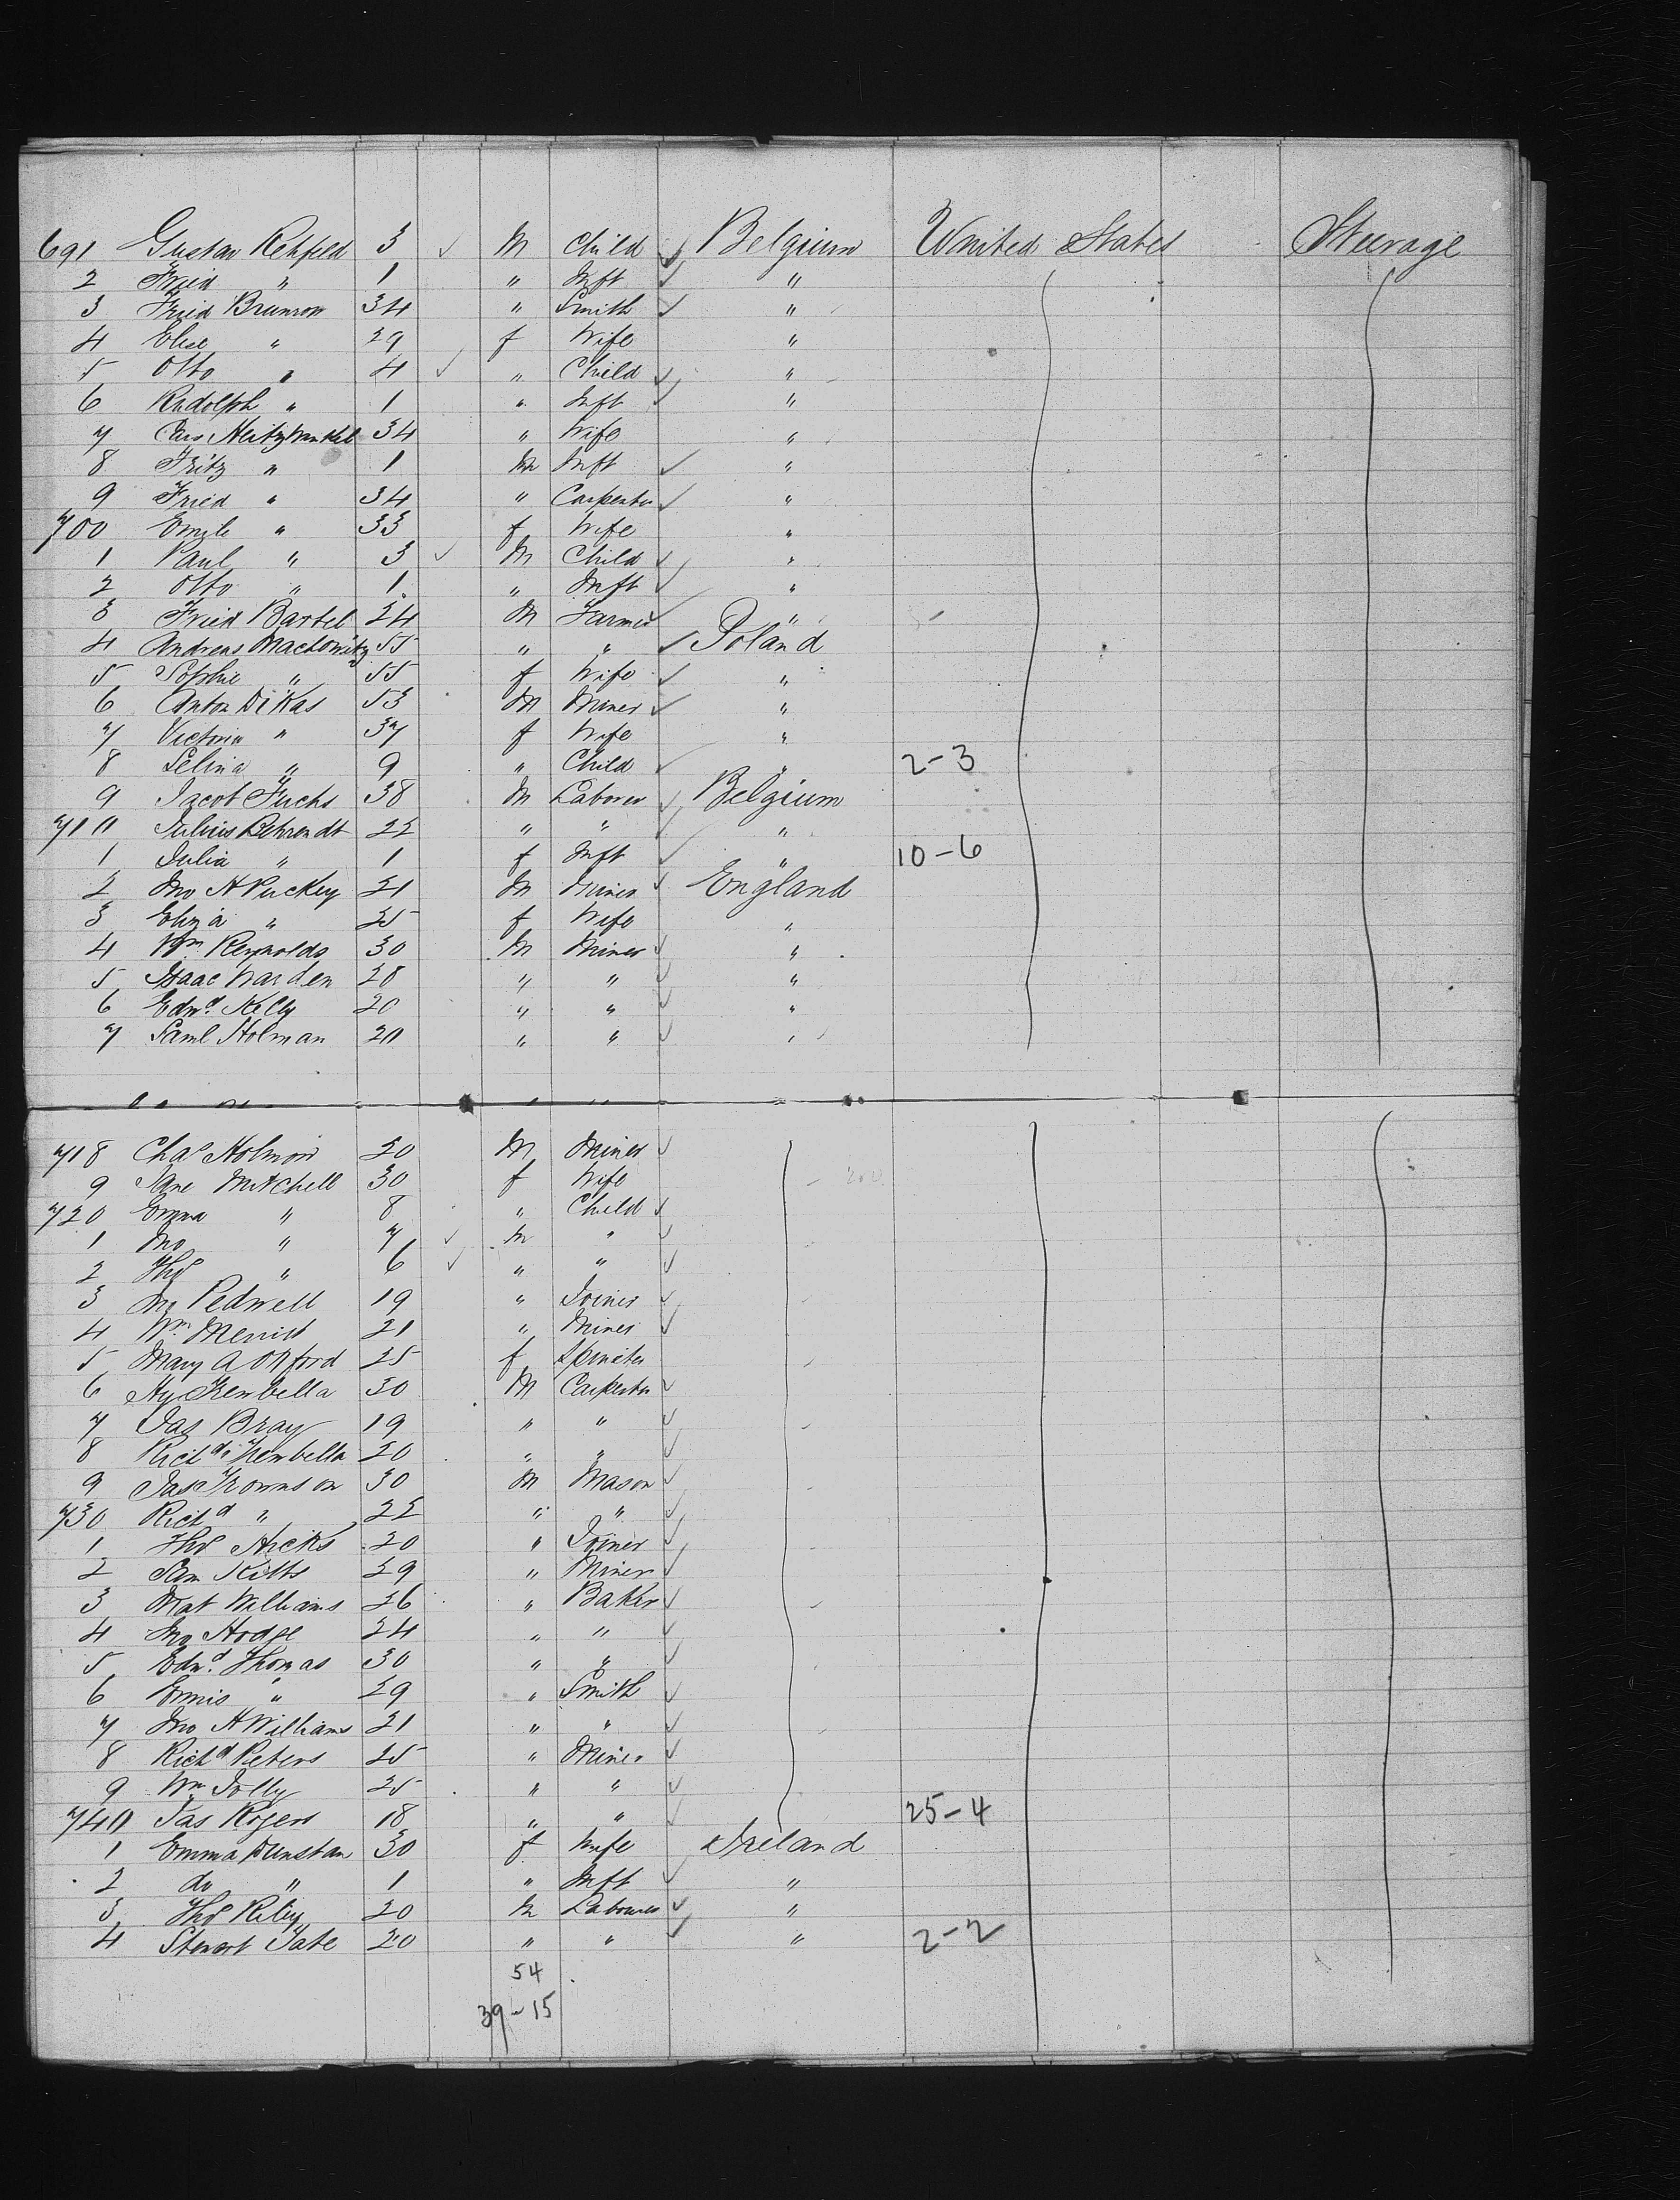 691 Gustav Rehfeld 3 ✓ M Child ✓ Belgium United States Steerage
2 Fried " 1 " Inft ✓ "
3 Fried Brunson 34 " Smith ✓ "
4 Elise " 29 f Wife "
5 Otto " 4 ✓ " Child ✓ "
6 Rudolph " 1 " Inft ✓ "
7 34 " Wife "
8 Fritz " 1 M Inft ✓ "
9 Fried " 34 " Carpenter ✓ "
700 Emile " 33 f Wife "
1 Paul " 3 ✓ M Child ✓ "
2 Otto " 1 " Inft ✓ "
3 Fried Bartel 24 M Farmer ✓ "
4 Andreas Machowitz 55 " " ✓ Poland
5 Sophie " 55 f Wife ✓ "
6 Anton Dikas 53 M Miner ✓ "
7 Victoria " 37 f Wife "
8 Selina " 9 " Child ✓ " 2-3
9 Jacob Fuchs 38 M Laborer ✓ Belgium
710 Julius Behrendt 22 " " ✓ "
1 Julia " 1 f Inft ✓ " 10-6
2 Jno H Puckey 21 M Miner ✓ England
3 Eliza " 25 f Wife "
4 Wm Reynolds 30 M Miner ✓ "
5 Isaac Warden 28 " " ✓ "
6 Edwd Kelly 20 " " ✓ "
7 Saml Holman 20 " " ✓ "
718 Chas Holman 20 M Miner ✓
9 Jane Mitchell 30 f Wife
720 Emma " 8 " Child ✓
1 Jno " 7 ✓ M " ✓
2 Thos " 6 ✓ " " ✓
3 Jno Pedwell 19 " Joiner ✓
4 Wm Merritt 21 " Miner ✓
5 Mary A Oxford 25 f Spinster
6 Hy Trembella 30 M Carpenter ✓
7 Jas Bray 19 " " ✓
8 Richd Trembella 20 " " ✓
9 Jas Trownson 30 M Mason ✓
730 Richd " 22 " " ✓
1 Thos Hicks 20 " Joiner ✓
2 Sam Kitts 29 " Miner ✓
3 Mat Williams 26 " Baker ✓
4 Jno Hodge 24 " " ✓
5 Edwd Thomas 30 " " ✓
6 Ennis " 29 " Smith ✓
7 Jno H Williams 21 " " ✓
8 Richd Peters 25 " Miner ✓
9 Wm Jolly 25 " " ✓
740 Jas Rogers 18 " " ✓ 25-4
1 Emma Dunstan 30 f Wife Ireland
2 do " 1 " Inft ✓ "
3 Thos Riley 20 M Labourer ✓ "
4 Stewart Tate 20 " " ✓ " 2-2
54
39-15